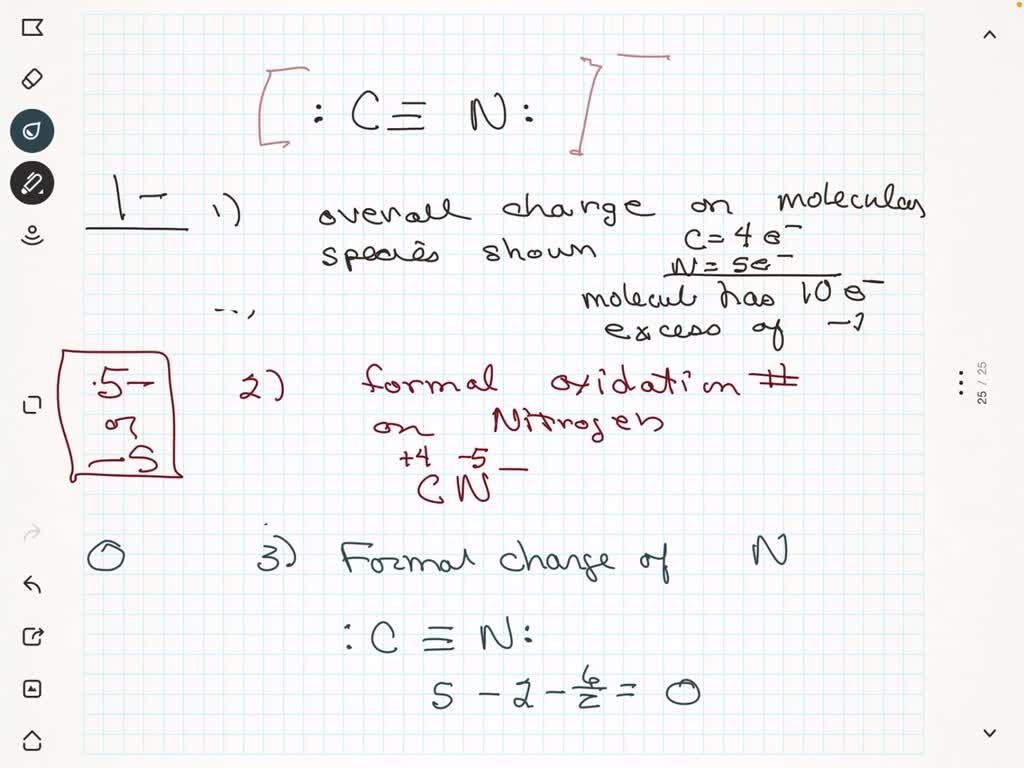 [:C≡N:]⁻
1- 1) overall charge on molecular
species shown
C=4e⁻
N=5e⁻
molecul has 10 e⁻
excess of -1
.5- 2) formal oxidation #
or on Nitrogen
-5
+4 -5
CN⁻
0 3) Formal charge of N
:C≡N:
5 - 2 - 6/2 = 0
25 / 25